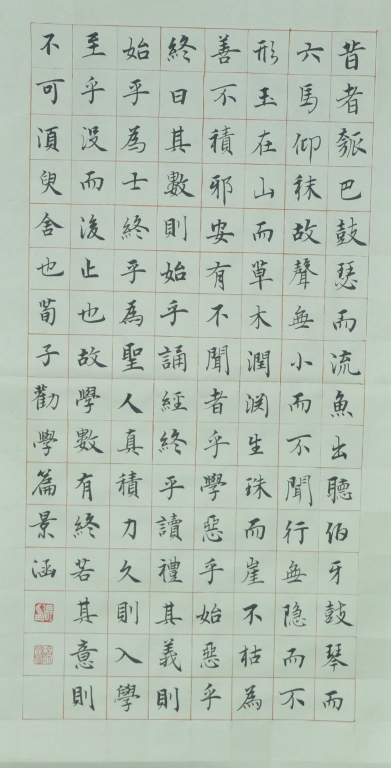 昔者瓠巴鼓瑟而流魚出聽伯牙鼓琴而
六馬仰秣故聲無小而不聞行無隐而不
形玉在山而草木潤渊生珠而崖不枯為
善不積邪安有不聞者乎學惡乎始惡乎
終曰其數則始乎誦經終乎讀禮其義則
始乎為士終乎為聖人真積力久則入學
至乎没而後止也故學數有終若其意則
不可須臾舍也荀子勸學篇景涵